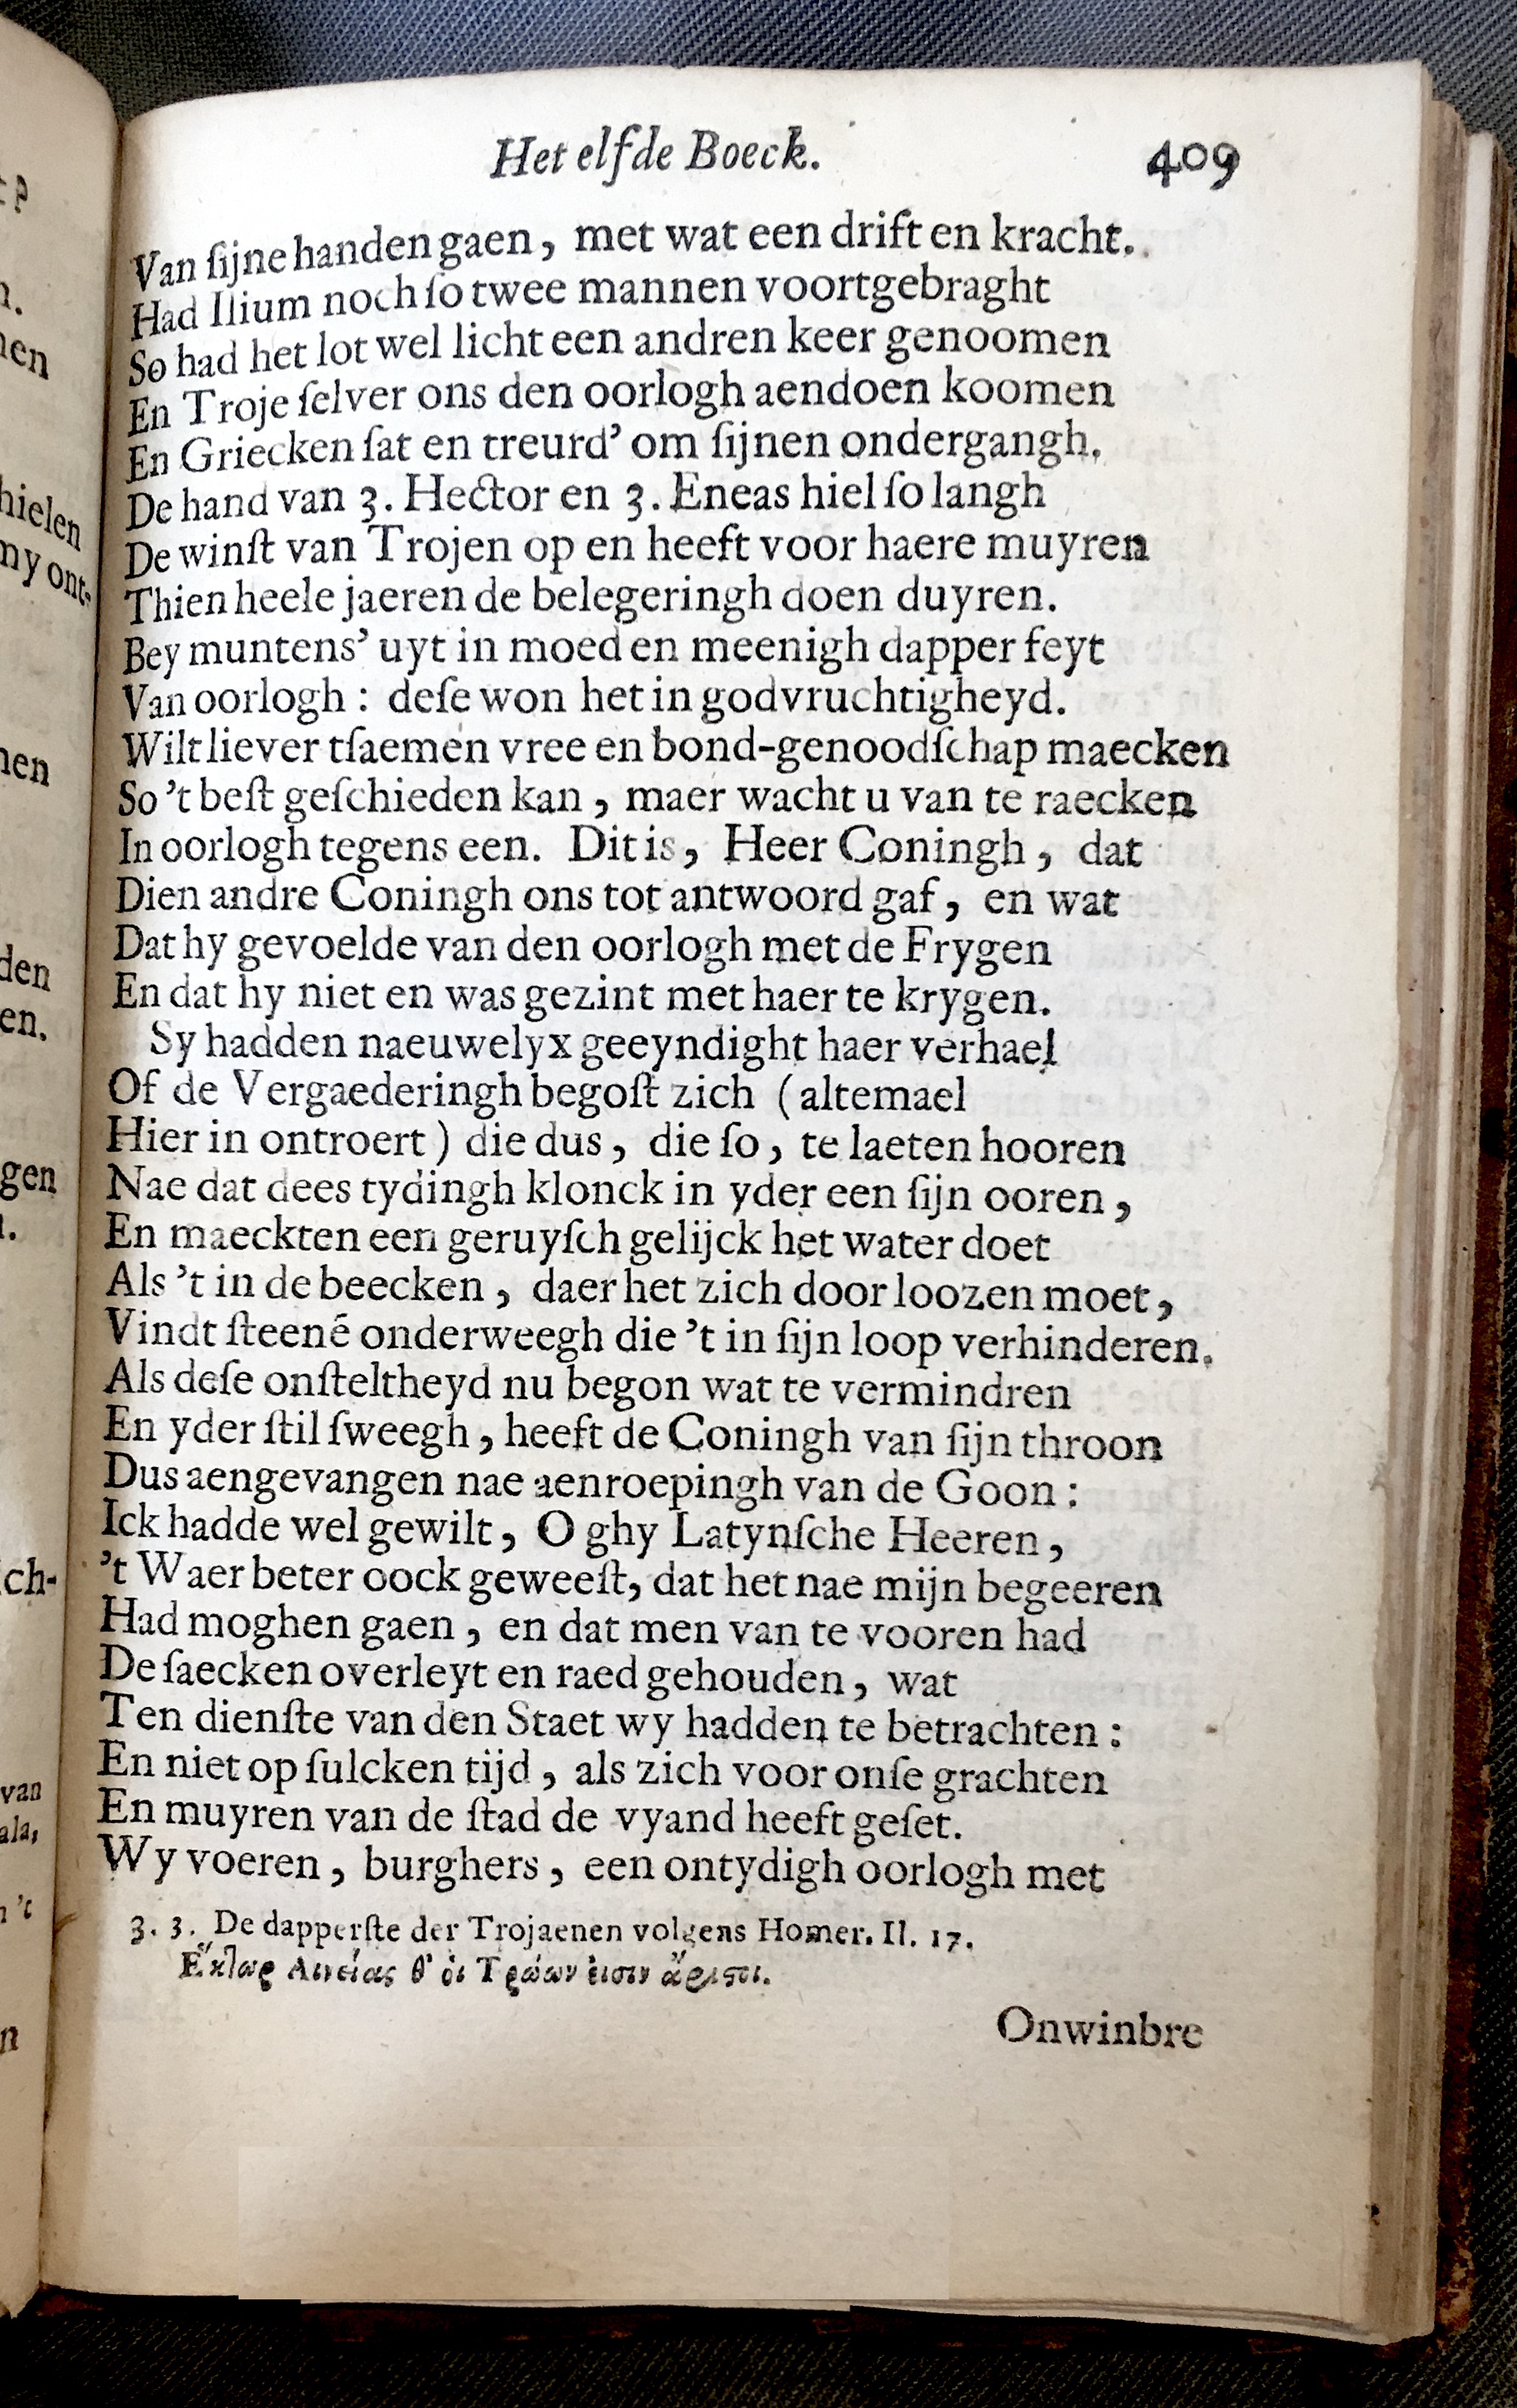 Het elfde Boeck. 409
Van ſijne handen gaen, met wat een drift en kracht.
Had Ilium noch ſo twee mannen voortgebraght
So had het lot wel licht een andren keer genoomen
En Troje ſelver ons den oorlogh aendoen koomen
En Griecken ſat en treurd' om ſijnen ondergangh.
De hand van 3. Hector en 3. Eneas hiel ſo langh
De winſt van Trojen op en heeft voor haere muyren
Thien heele jaeren de belegeringh doen duyren.
Bey muntens' uyt in moed en meenigh dapper feyt
Van oorlogh : deſe won het in godvruchtigheyd.
Wilt liever tſaemen vree en bond-genoodſchap maecken
So 't beſt geſchieden kan, maer wacht u van te raecken
In oorlogh tegens een. Dit is, Heer Coningh, dat
Dien andre Coningh ons tot antwoord gaf, en wat
Dat hy gevoelde van den oorlogh met de Frygen
En dat hy niet en was gezint met haer te krygen.
Sy hadden naeuwelyx geeyndight haer verhael
Of de Vergaederingh begoſt zich (altemael
Hier in ontroert) die dus, die ſo, te laeten hooren
Nae dat dees tydingh klonck in yder een ſijn ooren,
En maeckten een geruyſch gelijck het water doet
Als 't in de beecken, daer het zich door loozen moet,
Vindt ſteenē onderweegh die 't in ſijn loop verhinderen.
Als deſe onſteltheyd nu begon wat te vermindren
En yder ſtil ſweegh, heeft de Coningh van ſijn throon
Dus aengevangen nae aenroepingh van de Goon :
Ick hadde wel gewilt, O ghy Latynſche Heeren,
't Waer beter oock geweeſt, dat het nae mijn begeeren
Had moghen gaen, en dat men van te vooren had
De ſaecken overleyt en raed gehouden, wat
Ten dienſte van den Staet wy hadden te betrachten :
En niet op ſulcken tijd, als zich voor onſe grachten
En muyren van de ſtad de vyand heeft geſet.
Wy voeren, burghers, een ontydigh oorlogh met
3. 3. De dapperſte der Trojaenen volgens Homer. Il. 17.
Ἕκτωρ Αινείας θ' ὁι Τρώων ἐισιν ἄριστοι.
Onwinbre